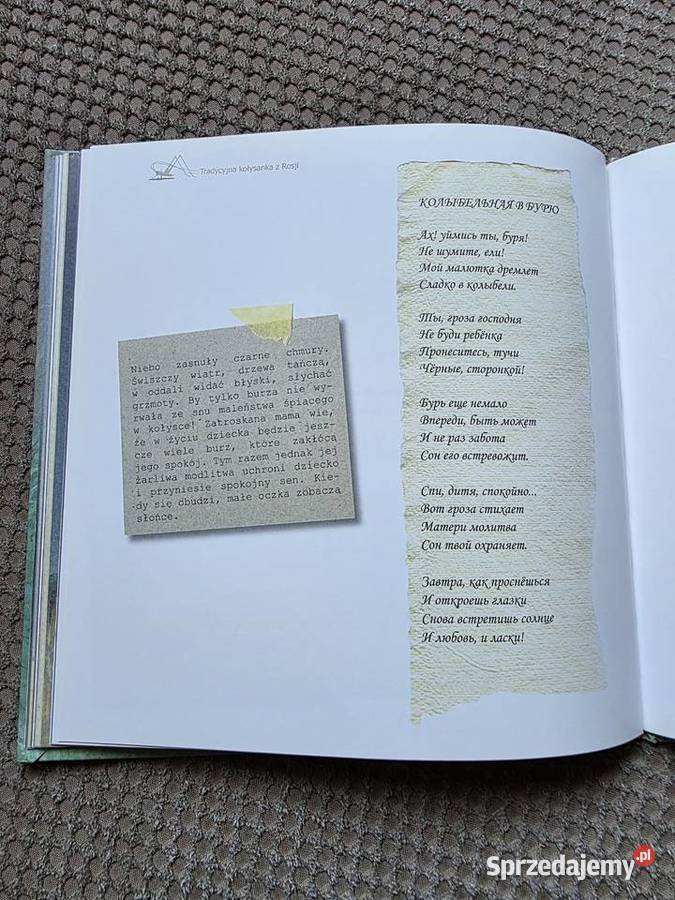 Tradycyjna kołysanka z Rosji
Niebo zasnuły czarne chmury.
Świszczy wiatr, drzewa tańczą,
w oddali widać błyski, słychać
grzmoty. By tylko burza nie wy-
rwała ze snu maleństwa śpiącego
w kołysce! Zatroskana mama wie,
że w życiu dziecka będzie jesz-
cze wiele burz, które zakłócą
jego spokój. Tym razem jednak jej
żarliwa modlitwa uchroni dziecko
i przyniesie spokojny sen. Kie-
dy się obudzi, małe oczka zobaczą
słońce.
КОЛЫБЕЛЬНАЯ В БУРЮ
Ах! уймись ты, буря!
Не шумите, ели!
Мой малютка дремлет
Сладко в колыбели.
Ты, гроза господня
Не буди ребёнка
Пронеситесь, тучи
Чёрные, сторонкой!
Бурь еще немало
Впереди, быть может
И не раз забота
Сон его встревожит.
Спи, дитя, спокойно...
Вот гроза стихает
Матери молитва
Сон твой охраняет.
Завтра, как проснёшься
И откроешь глазки
Снова встретишь солнце
И любовь, и ласки!
Sprzedajemy.pl